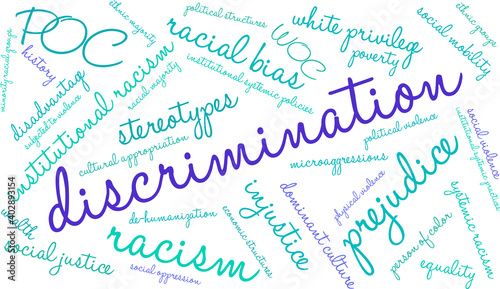 ethnic majority
political structures
white privileg
POC
racial bias
WOC
poverty
social mobility
minority racial groups
history
disadvantag
subjected to violence
institutional racism
racial majority
institutional systemic policies
stereotypes
cultural appropriation
discrimination
political violence
microaggressions
physical violence
prejudice
systemic racism
de-humanization
economic structures
injustice
dominant culture
person of color
social justice
racism
social oppression
equality
Adobe Stock | #402893154